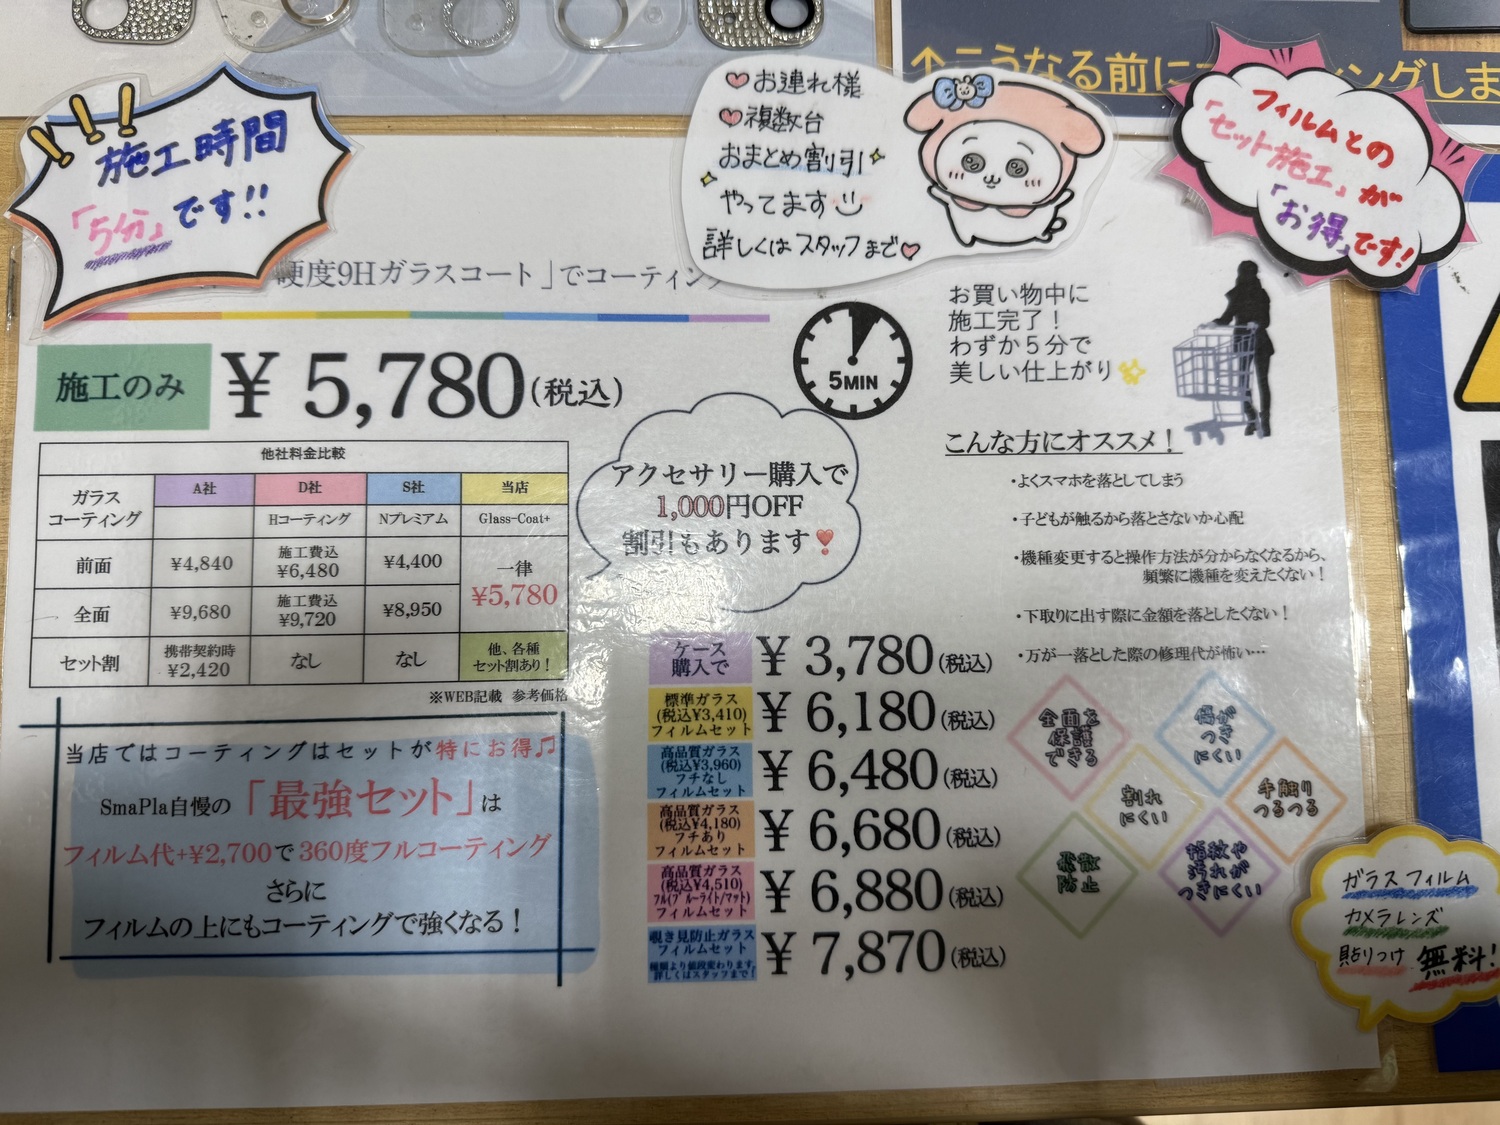 施工時間
「5分」です!!
♡お連れ様
♡複数台
おまとめ割引
やってます
詳しくはスタッフまで♡
フィルムとの
「セット施工」が
「お得」です!
硬度9Hガラスコート」でコーティン
施工のみ
¥5,780(税込)
5MIN
お買い物中に
施工完了！
わずか５分で
美しい仕上がり
他社料金比較
ガラス
コーティング
A社
D社
S社
当店
Hコーティング
Nプレミアム
Glass-Coat+
前面
¥4,840
施工費込
¥6,480
¥4,400
一律
¥5,780
全面
¥9,680
施工費込
¥9,720
¥8,950
セット割
携帯契約時
¥2,420
なし
なし
他、各種
セット割あり！
※WEB記載 参考価格
アクセサリー購入で
1,000円OFF
割引もあります
こんな方にオススメ！
・よくスマホを落としてしまう
・子どもが触るから落とさないか心配
・機種変更すると操作方法が分からなくなるから、
頻繁に機種を変えたくない！
・下取りに出す際に金額を落としたくない！
・万が一落とした際の修理代が怖い…
当店ではコーティングはセットが特にお得♫
SmaPla自慢の「最強セット」は
フィルム代+¥2,700で360度フルコーティング
さらに
フィルムの上にもコーティングで強くなる！
ケース
購入で
¥3,780(税込)
標準ガラス
(税込¥3,410)
フィルムセット
¥6,180(税込)
高品質ガラス
(税込¥3,960)
フチなし
フィルムセット
¥6,480(税込)
高品質ガラス
(税込¥4,180)
フチあり
フィルムセット
¥6,680(税込)
高品質ガラス
(税込¥4,510)
フル(ブルーライト/マット)
フィルムセット
¥6,880(税込)
覗き見防止ガラス
フィルムセット
種類より値段変わります。
詳しくはスタッフまで！
¥7,870(税込)
全面を
保護
できる
傷が
つき
にくい
割れ
にくい
手触り
つるつる
飛散
防止
指紋や
汚れが
つきにくい
ガラスフィルム
カメラレンズ
貼りつけ 無料!